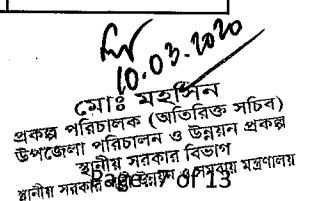 10.03.2020
মোঃ মহসিন
প্রকল্প পরিচালক (অতিরিক্ত সচিব)
উপজেলা পরিচালন ও উন্নয়ন প্রকল্প
স্থানীয় সরকার বিভাগ
স্থানীয় সরকার পল্লী উন্নয়ন ও সমবায় মন্ত্রণালয়
Page 7 of 13